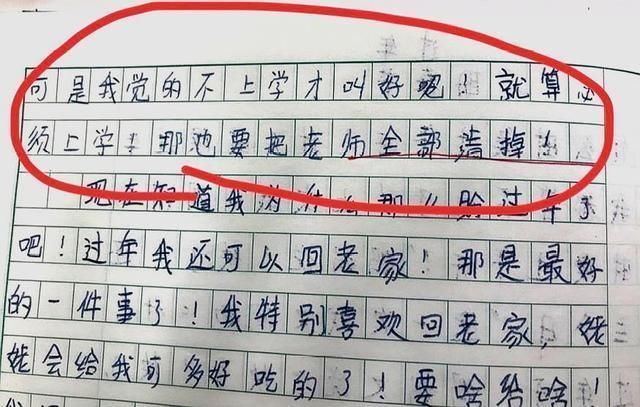 可是我觉的不上学才叫好呢！就算必
须上学！那也要把老师全部清掉！
现在知道我为什么那么盼过年了
吧！过年我还可以回老家！那是最好
的一件事了！我特别喜欢回老家，姥
姥会给我可多好吃的了！要啥给啥！